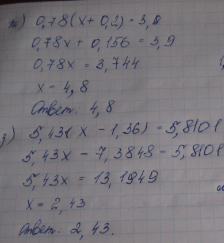 ж) 0,78(x + 0,2) = 3,9
0,78x + 0,156 = 3,9
0,78x = 3,744
x = 4,8
Ответ: 4,8
з) 5,43(x - 1,36) = 5,8101
5,43x - 7,3848 = 5,8101
5,43x = 13,1949
x = 2,43
Ответ: 2,43.